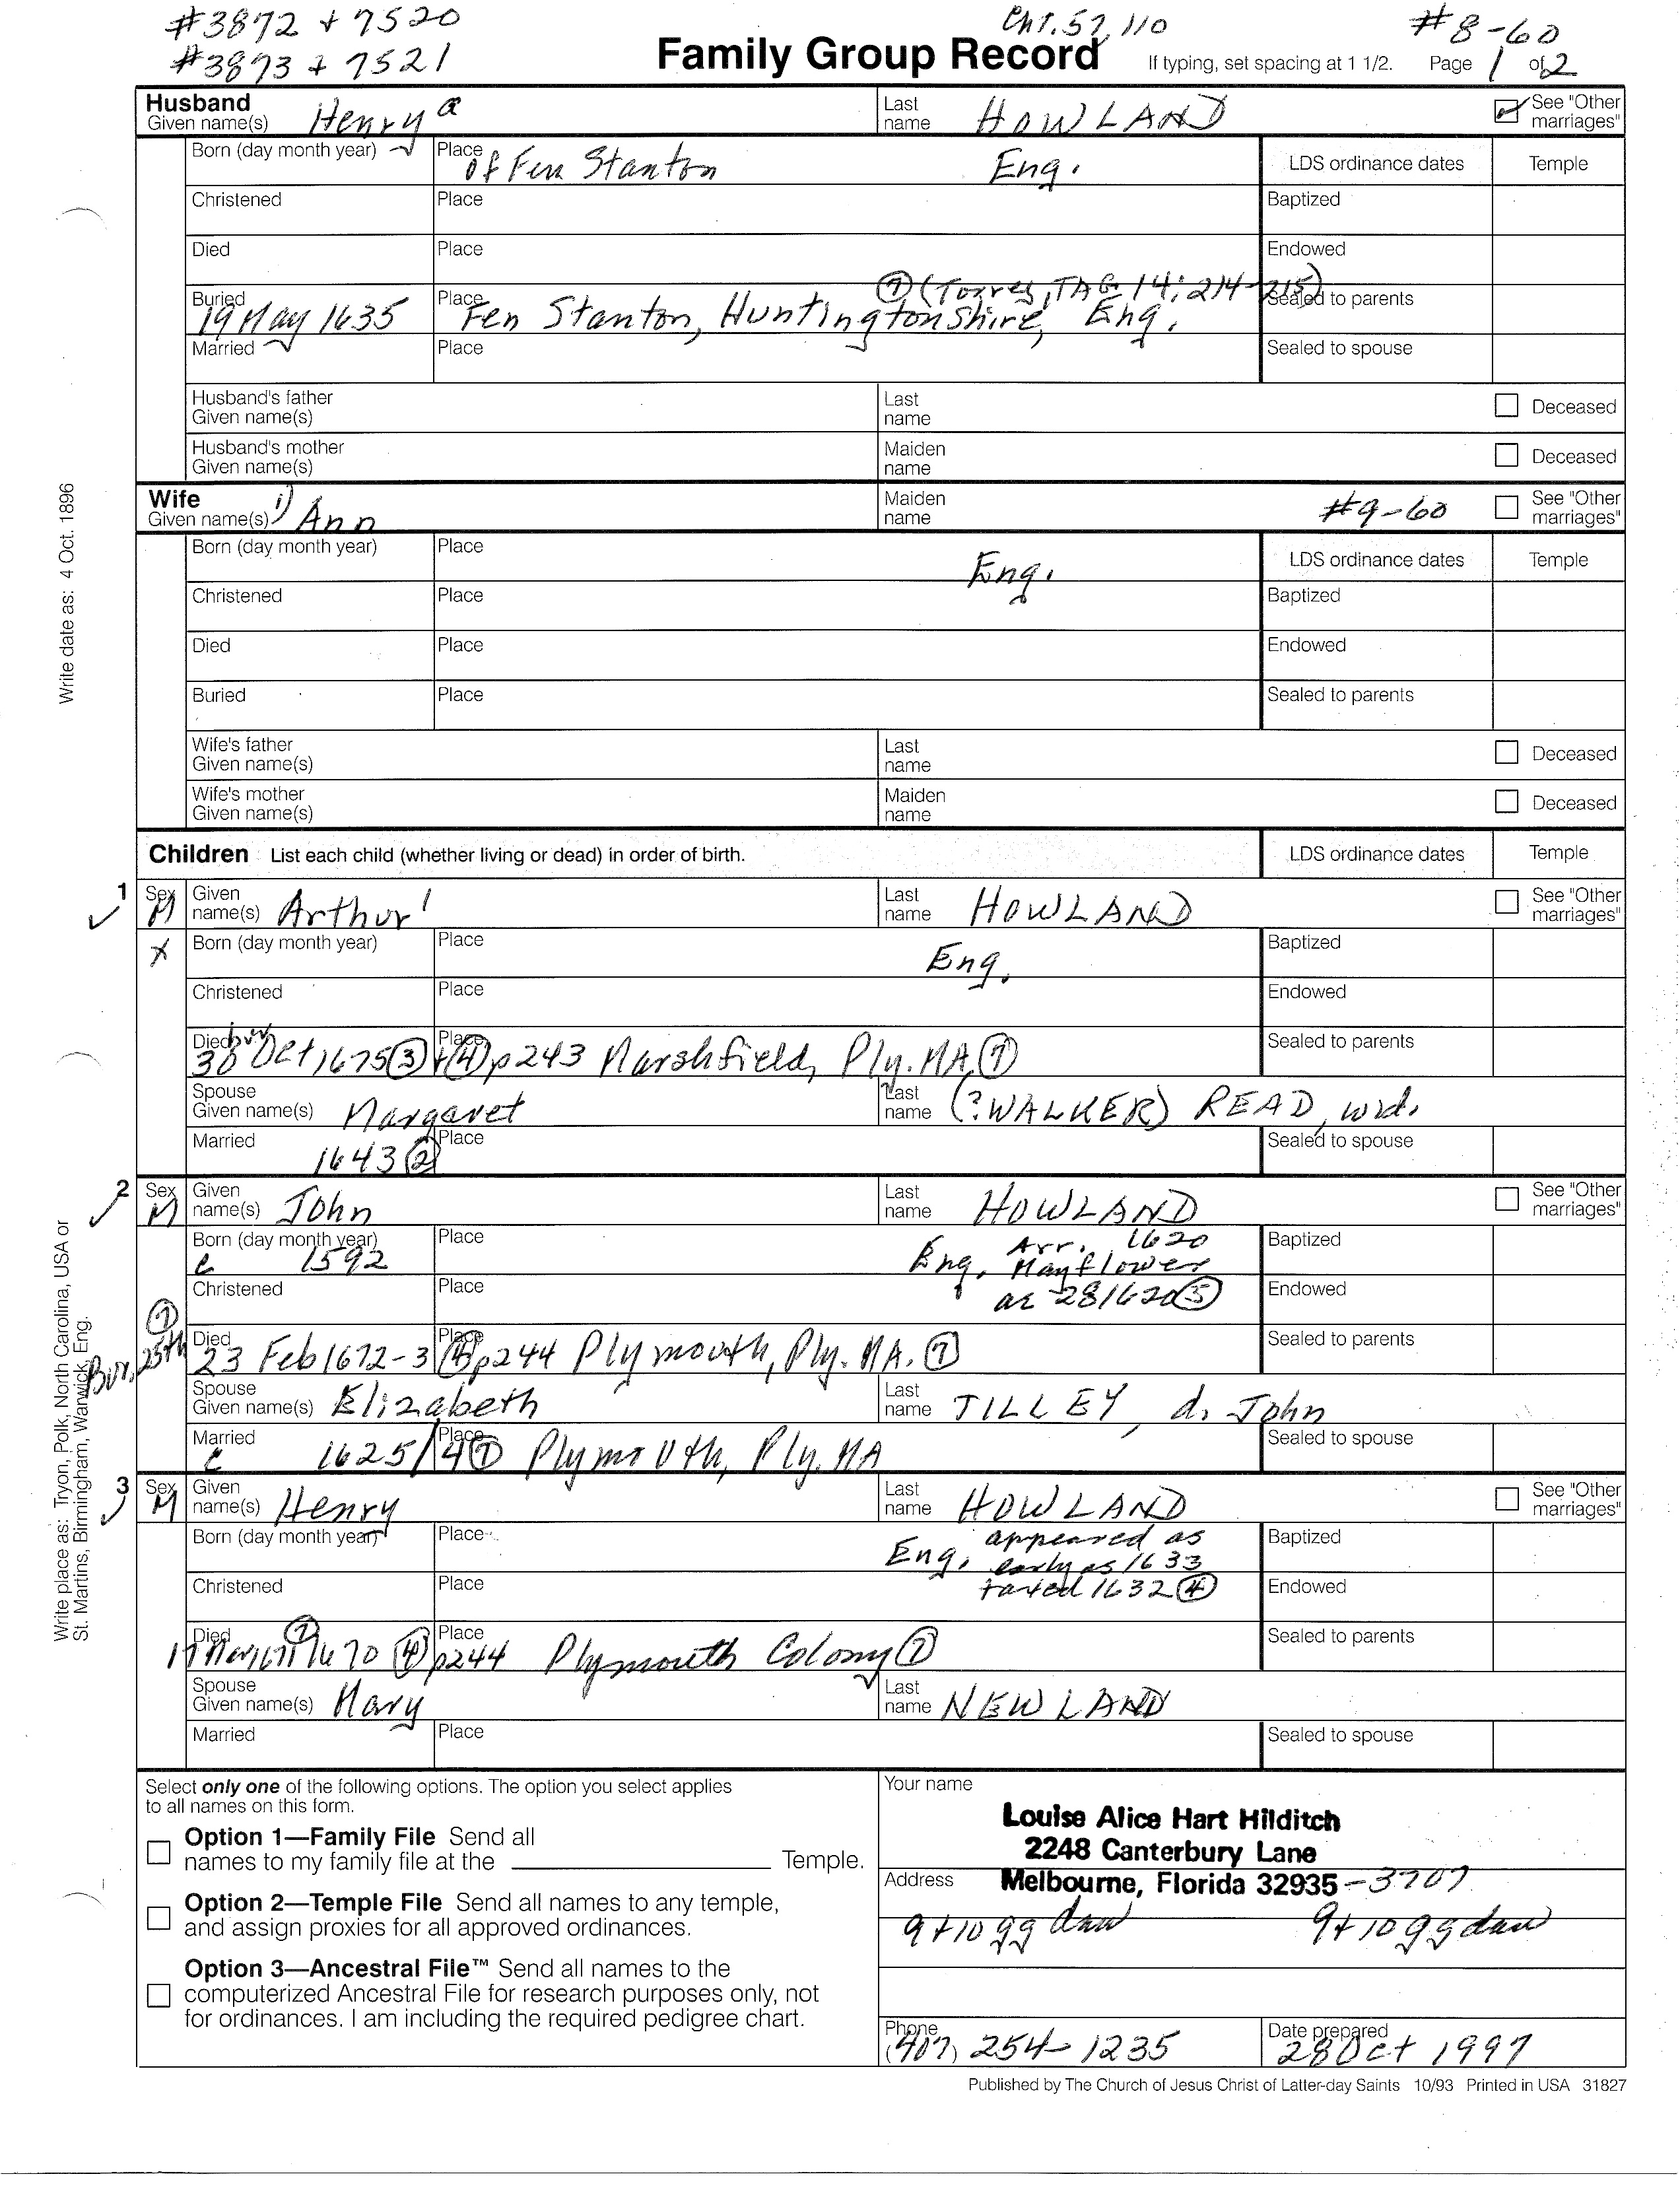 #3872 + 7520
Cht. 57, 110
#8-60
#3873 + 7521
Family Group Record
If typing, set spacing at 1 1/2.
Page 1 of 2
Husband
Given name(s) Henry a
Last name HOWLAND
See "Other marriages"
Born (day month year)
Place of Fen Stanton Eng.
LDS ordinance dates
Temple
Christened
Place
Baptized
Died
Place
Endowed
⑦ (Torrey, TAG 14; 214-215)
Buried 19 May 1635
Place Fen Stanton, Huntingtonshire, Eng.
Sealed to parents
Married
Place
Sealed to spouse
Husband's father
Given name(s)
Last name
Deceased
Husband's mother
Given name(s)
Maiden name
Deceased
Wife
Given name(s) 1) Ann
Maiden name
#9-60
See "Other marriages"
Born (day month year)
Place Eng.
LDS ordinance dates
Temple
Christened
Place
Baptized
Died
Place
Endowed
Buried
Place
Sealed to parents
Wife's father
Given name(s)
Last name
Deceased
Wife's mother
Given name(s)
Maiden name
Deceased
Children List each child (whether living or dead) in order of birth.
LDS ordinance dates
Temple
1
Sex M
Given name(s) Arthur 1
Last name HOWLAND
See "Other marriages"
X
Born (day month year)
Place Eng.
Baptized
Christened
Place
Endowed
Died bur 30 Oct 1675 ③ + ④ p243
Place Marshfield, Ply. MA ⑦
Sealed to parents
Spouse
Given name(s) Margaret
Last name (?WALKER) READ, wid.
Married 1643 ②
Place
Sealed to spouse
2
Sex M
Given name(s) John
Last name HOWLAND
See "Other marriages"
Born (day month year) c 1592
Place Eng. Arr. 1620
Mayflower
ae 28 1620 ⑤
Baptized
Christened
Place
Endowed
⑦ Bur. 25th
Died 23 Feb 1672-3 ④ p244
Place Plymouth, Ply. MA. ⑦
Sealed to parents
Spouse
Given name(s) Elizabeth
Last name TILLEY, d. John
Married c 1625/4 ⑦
Place Plymouth, Ply. MA
Sealed to spouse
3
Sex M
Given name(s) Henry
Last name HOWLAND
See "Other marriages"
Born (day month year)
Place Eng. appeared as
early as 1633
taxed 1632 ④
Baptized
Christened
Place
Endowed
Died 17 1671 ⑦ 1670 ④ p244
Place Plymouth Colony ⑦
Sealed to parents
Spouse
Given name(s) Mary
Last name NEWLAND
Married
Place
Sealed to spouse
Write date as: 4 Oct. 1896
Write place as: Tryon, Polk, North Carolina, USA or
St. Martins, Birmingham, Warwick, Eng.
Select only one of the following options. The option you select applies
to all names on this form.
Option 1—Family File Send all
names to my family file at the ____ Temple.
Option 2—Temple File Send all names to any temple,
and assign proxies for all approved ordinances.
Option 3—Ancestral File™ Send all names to the
computerized Ancestral File for research purposes only, not
for ordinances. I am including the required pedigree chart.
Your name
Louise Alice Hart Hilditch
2248 Canterbury Lane
Address
Melbourne, Florida 32935-3707
9+10 gg dau 9+10 gg dau
Phone
(407) 254-1235
Date prepared
28 Oct 1997
Published by The Church of Jesus Christ of Latter-day Saints 10/93 Printed in USA 31827